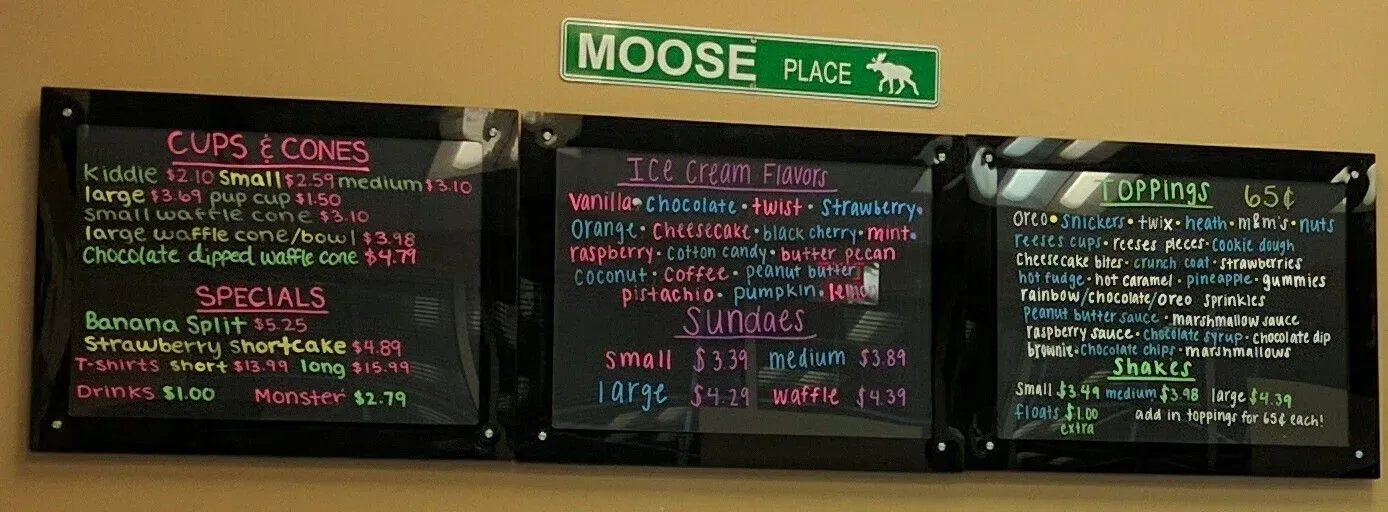 MOOSE PLACE
CUPS & CONES
kiddie $2.10 small $2.59 medium $3.10
large $3.69 pup cup $1.50
small waffle cone $3.10
large waffle cone/bowl $3.98
Chocolate dipped waffle cone $4.79
SPECIALS
Banana Split $5.25
Strawberry shortcake $4.89
T-shirts short $13.99 long $15.99
Drinks $1.00 Monster $2.79
Ice Cream Flavors
Vanilla • chocolate • twist • strawberry •
Orange • cheesecake • black cherry • mint •
raspberry • cotton candy • butter pecan
coconut • coffee • peanut butter
pistachio • pumpkin • lemon
Sundaes
small $3.39 medium $3.89
large $4.29 waffle $4.39
Toppings 65¢
oreo • snickers • twix • heath • m&m's • nuts
reeses cups • reeses pieces • cookie dough
cheesecake bites • crunch coat • strawberries
hot fudge • hot caramel • pineapple • gummies
rainbow/chocolate/oreo sprinkles
peanut butter sauce • marshmallow sauce
raspberry sauce • chocolate syrup • chocolate dip
brownie • chocolate chips • marshmallows
Shakes
small $3.49 medium $3.98 large $4.39
floats $1.00 add in toppings for 65¢ each!
extra